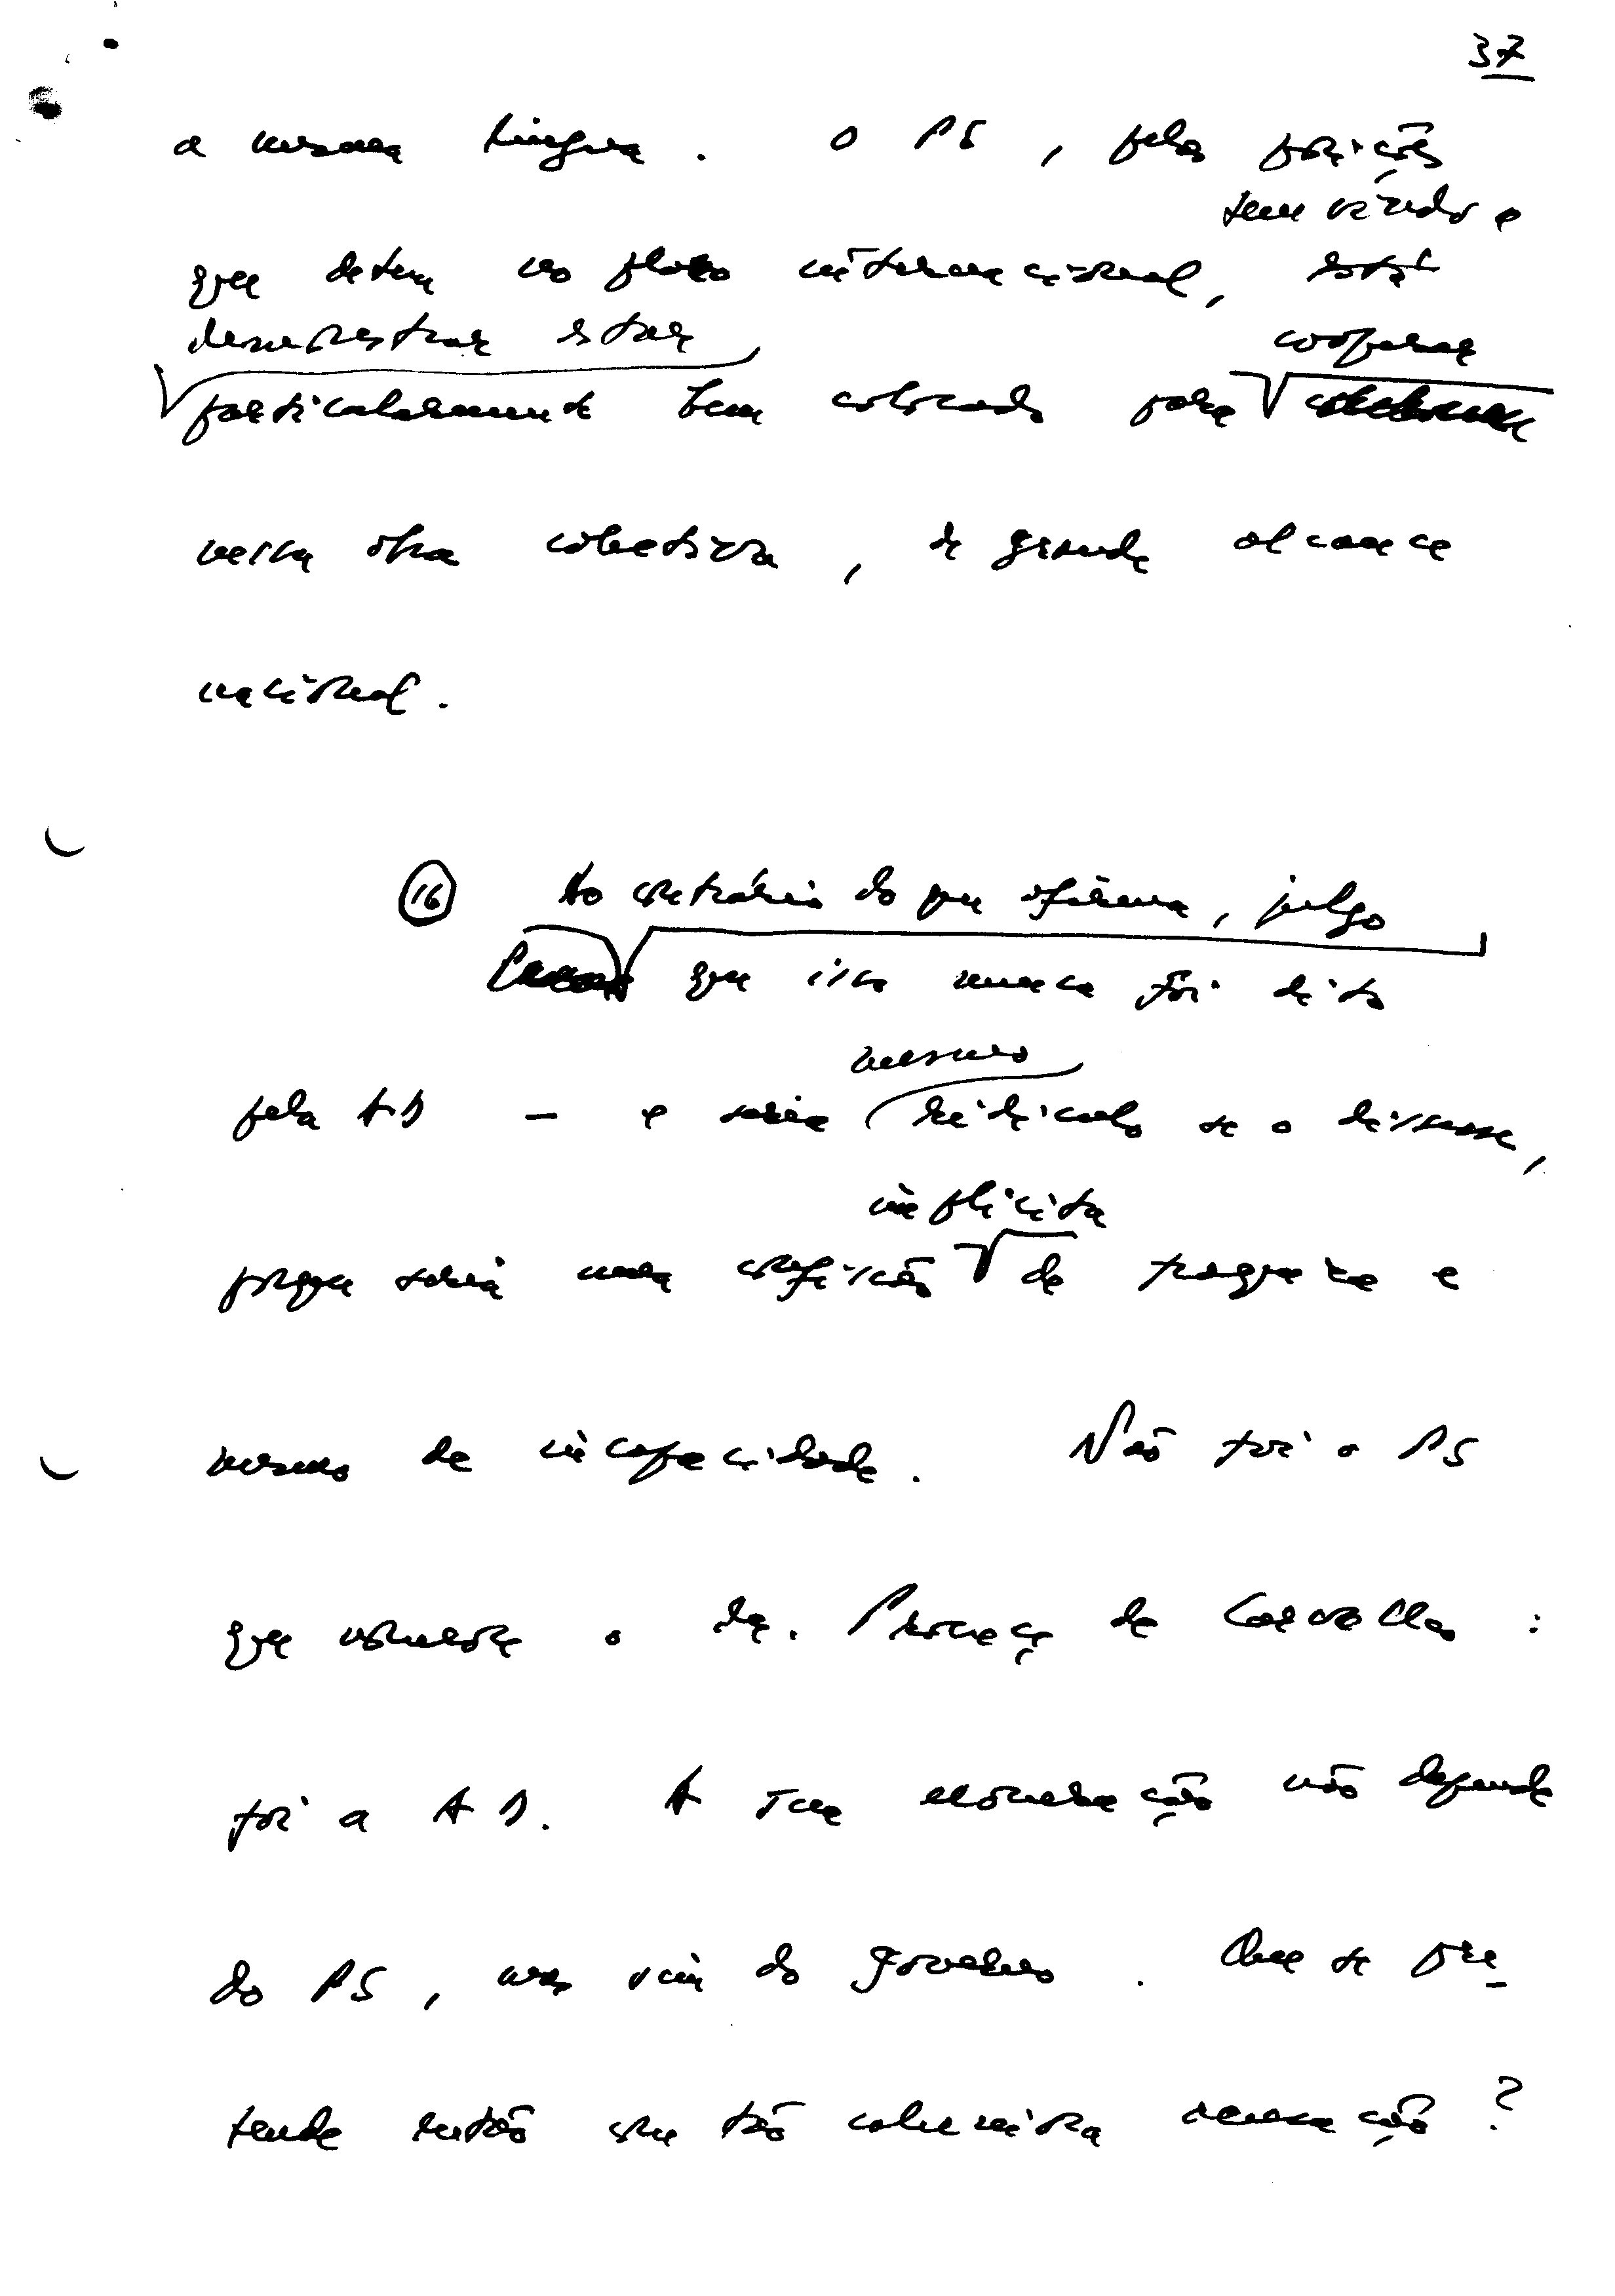 37
a mesma língua. O PS, pela posição
tem vindo a
que detem no plano internacional, está
demonstrar estar
cooperar
particularmente bem colocado para
nessa obra colectiva, de grande alcance
nacional.
16 Ao contrário do que afirma, julgo
que isso nunca foi dito
mesmo
pela AD – e seria ridículo se o dissesse,
implícita
porque seria uma confissão de fraqueza e
mesmo de incapacidade. Não foi o PS
que nomeou o dr. Proença de Carvalho:
foi a AD. A sua exoneração não depende
do PS, mas sim do governo. Que se pre-
tende então com tão caluniosa acusação?